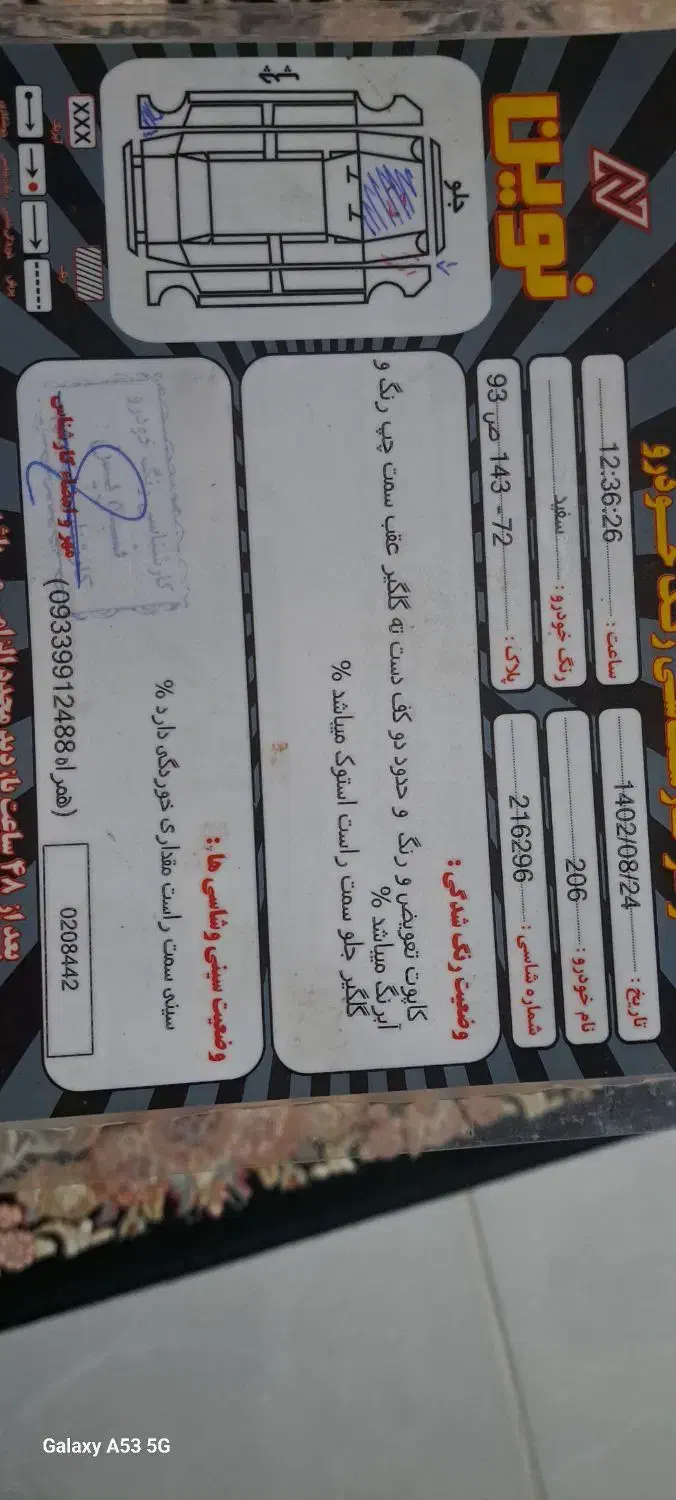 نوین
تاریخ : 1402/08/24
ساعت : 12:36:26
نام خودرو : 206
رنگ خودرو : سفید
شماره شاسی : 216296
پلاک : 72-143 ص 93
جلو
وضعیت رنگ شدگی :
کاپوت تعویض و رنگ و حدود دو کف دست ته گلگیر عقب سمت چپ رنگ و
آبرنگ میباشد %
گلگیر جلو سمت راست استوک میباشد %
وضعیت سینی و شاسی ها :
سینی سمت راست مقداری خوردگی دارد %
مهر و امضاء کارشناس
(همراه 09339912488)
0208442
XXX
بعد از ۴۸ ساعت بازدید مجدد الزامی
Galaxy A53 5G